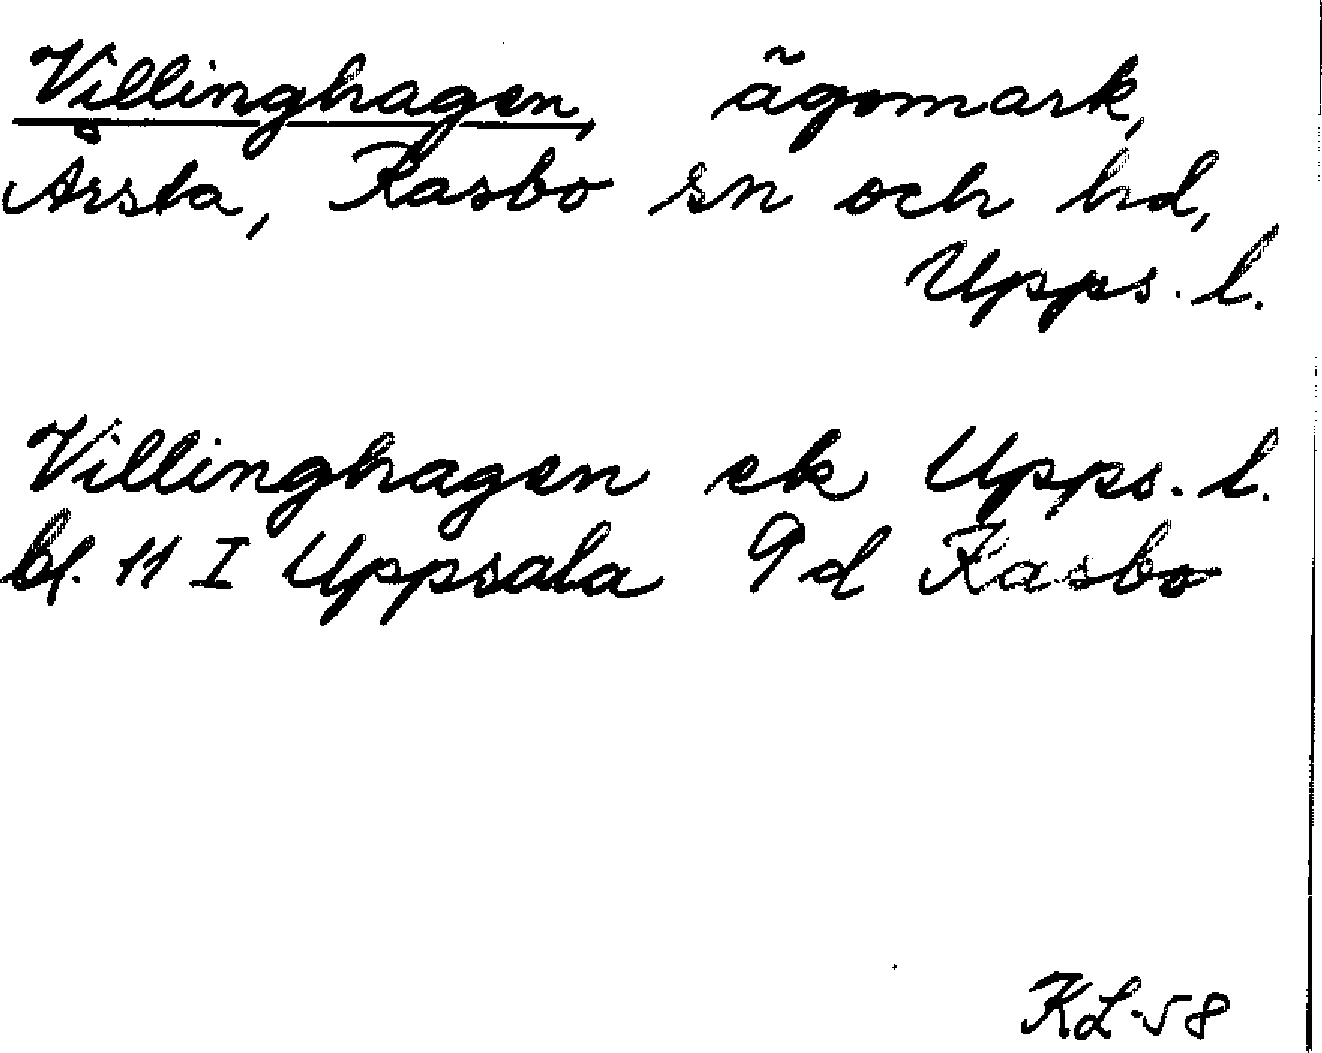 Villinghagen, ägomark,
Årsta, Rasbo sn och hd,
Upps. l.
Villinghagen ek Upps. l.
bl. 11 I Uppsala 9d Rasbo
KL-58